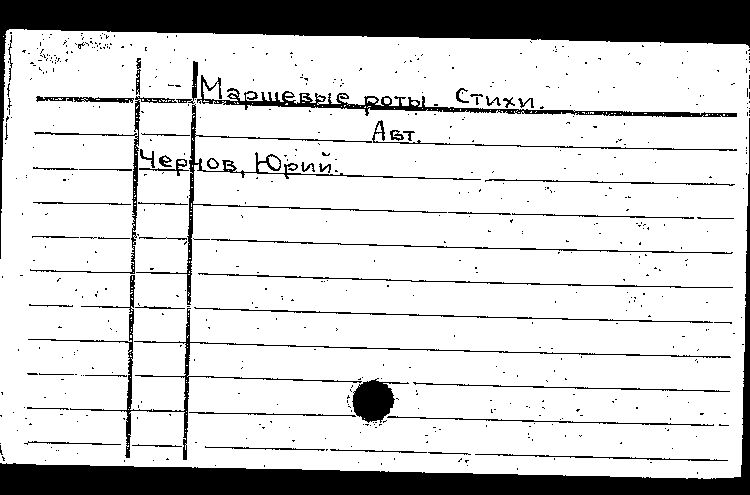 Маршевые роты. Стихи.
Авт.
Чернов, Юрий.